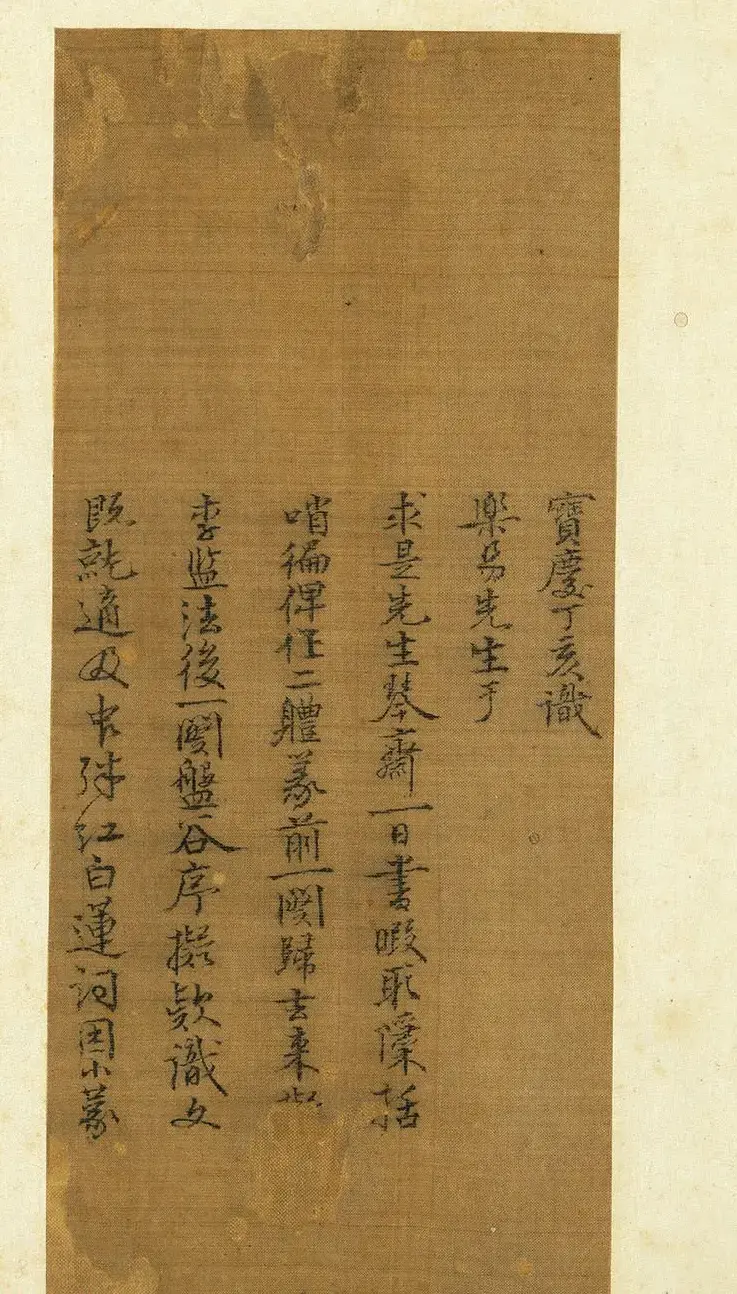 寶慶丁亥識
樂易先生于
求是先生琴齋一日書暇取隱括
哨徧俾作二體篆前一闋歸去來
李監法後一闋盤谷序擬款識文
既就適及紅白蓮詞因小篆